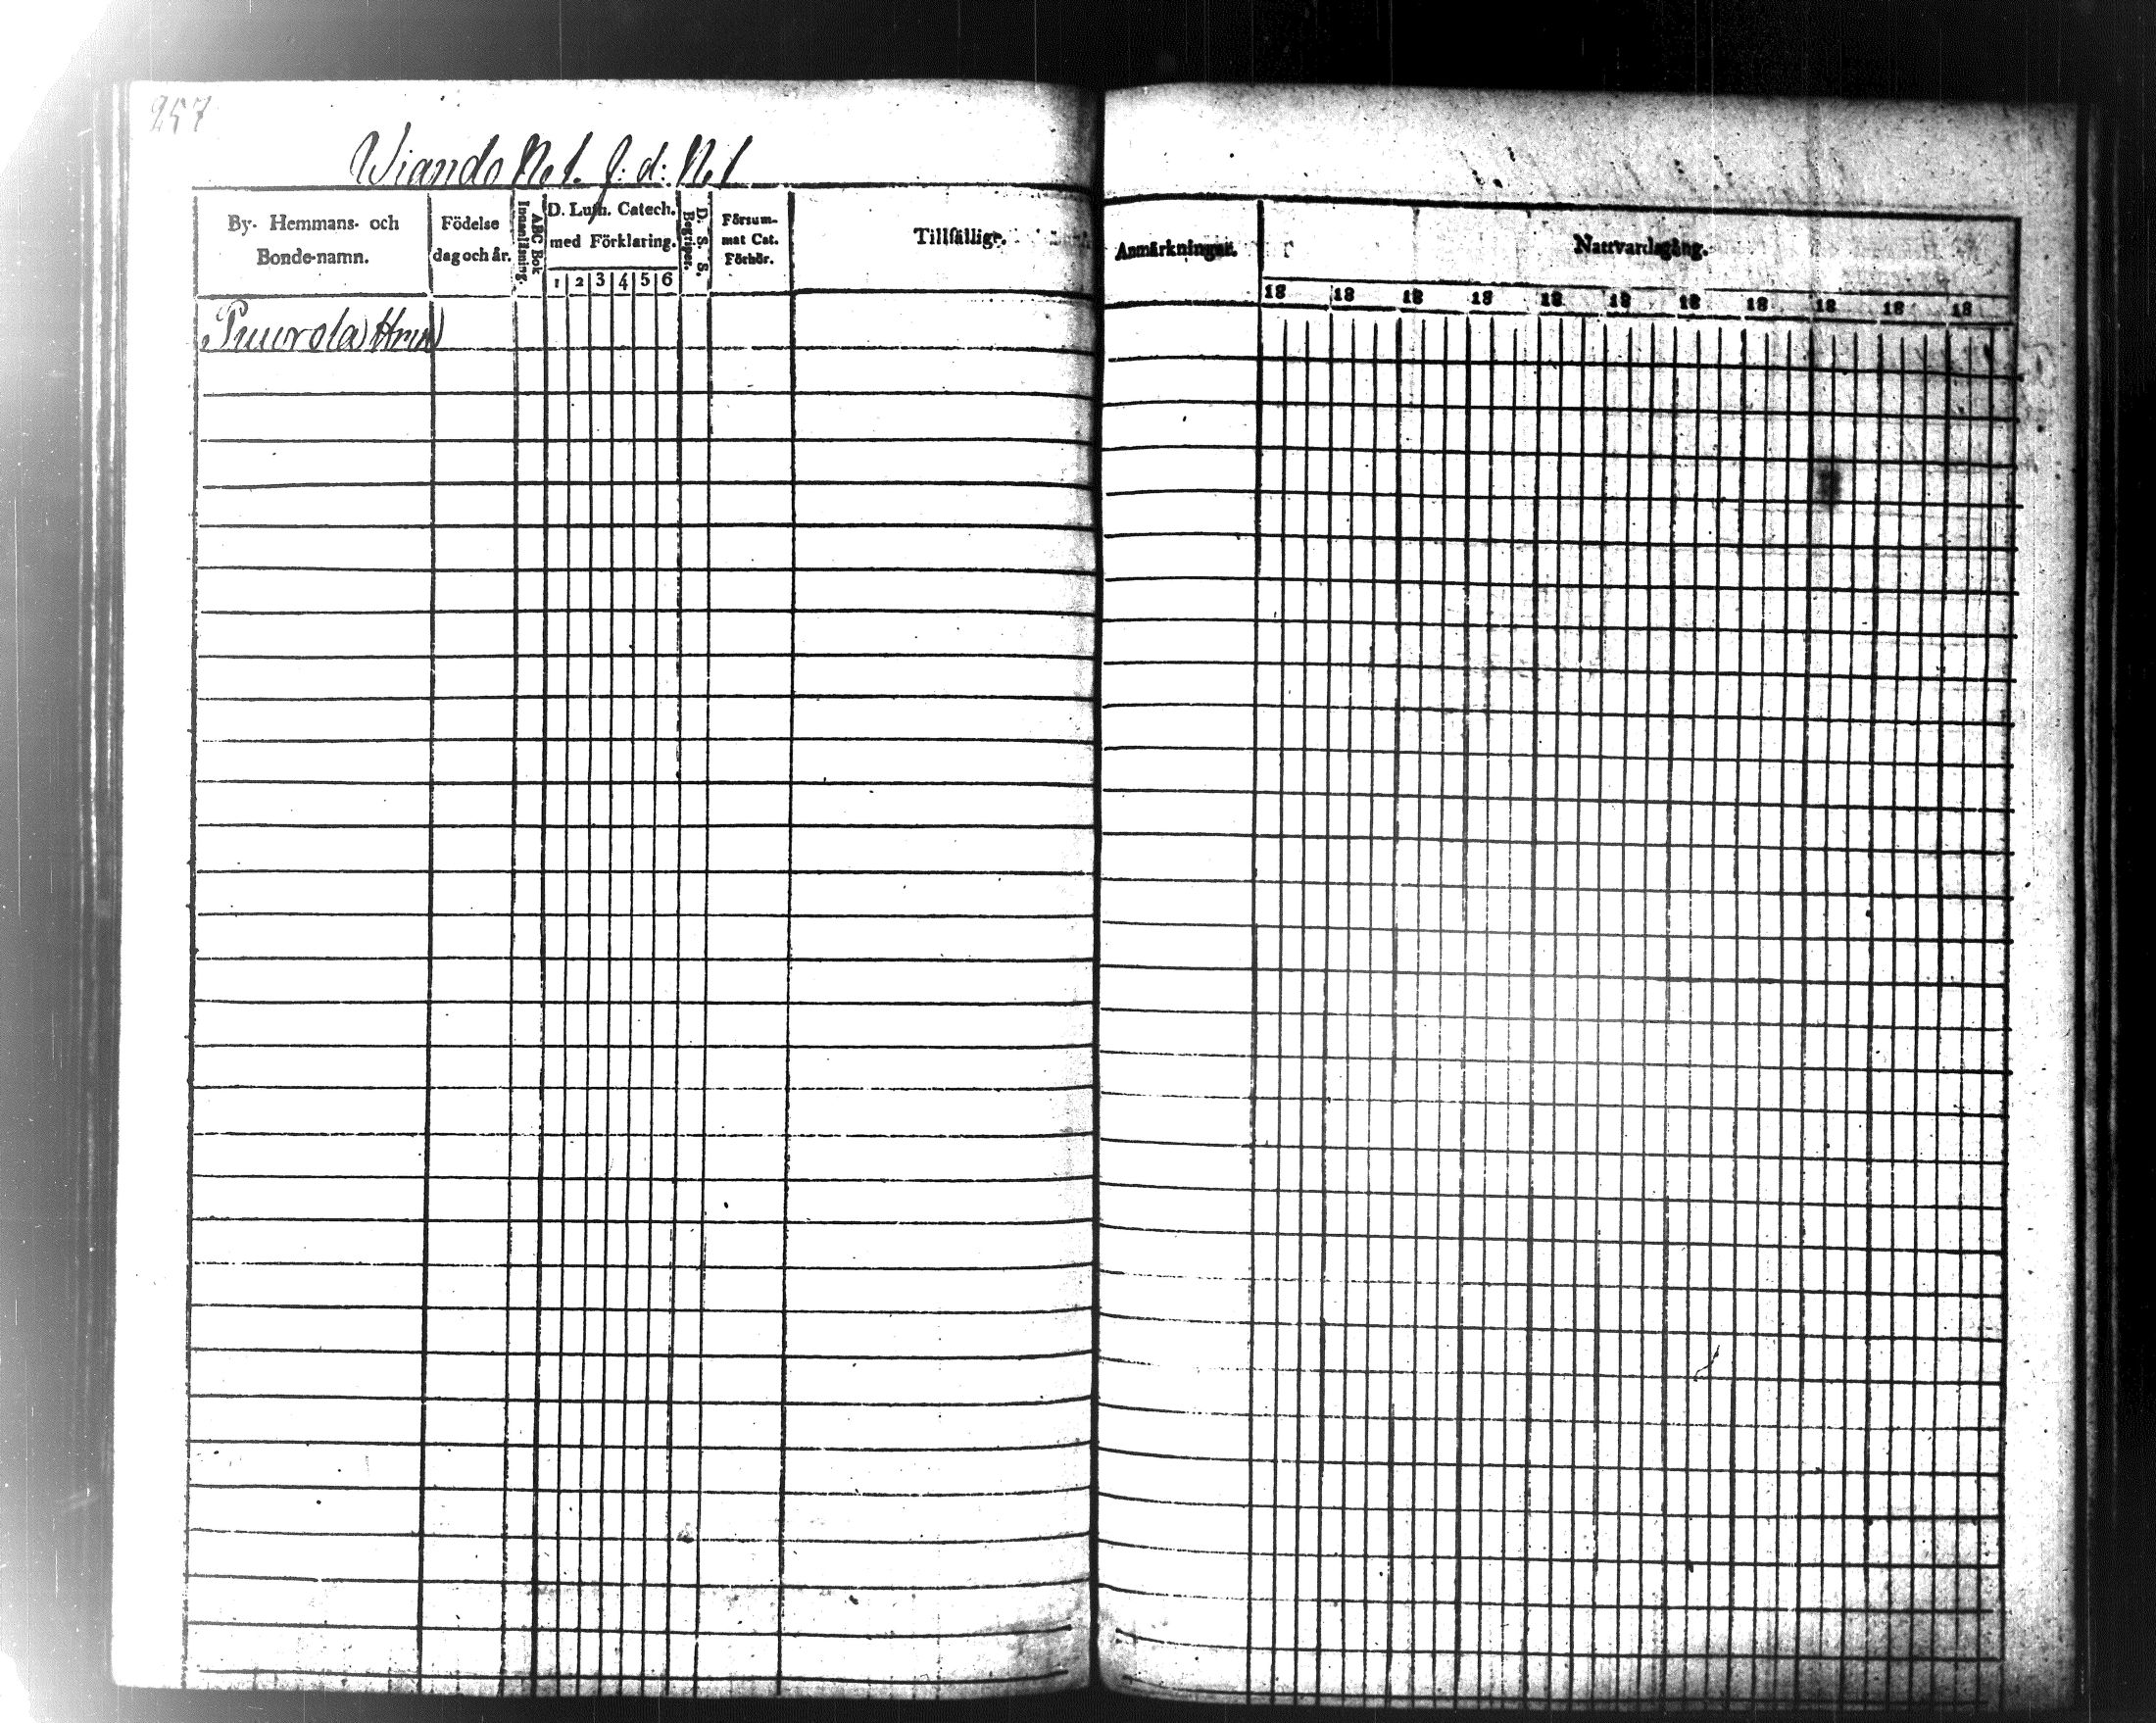 257
Wiando No 1. J: d: No 1
By- Hemmans- och Bonde-namn.
Födelse dag och år.
ABC Bok Innanläsning.
D. Luth. Catech. med Förklaring.
1 2 3 4 5 6
D. S. S. Begriper.
Försum- mat Cat. Förhör.
Tillfällige.
Anmärkningar.
Nattvardsgång.
18 18 18 18 18 18 18 18 18 18 18